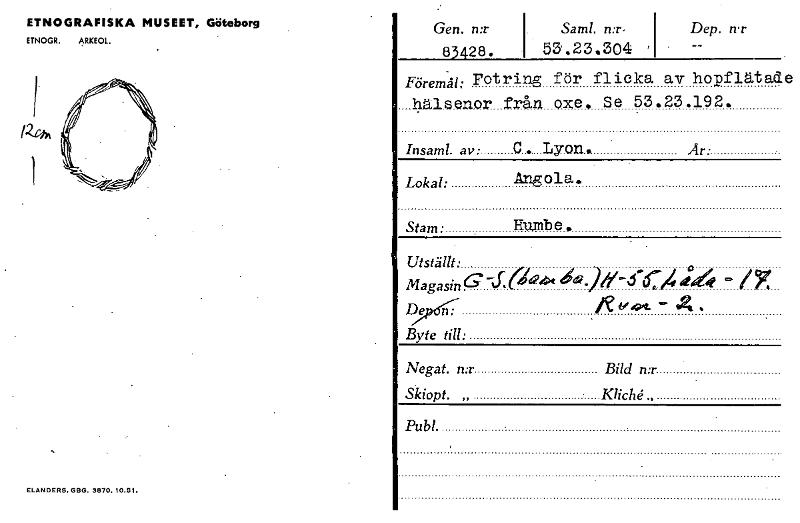 ETNOGRAFISKA MUSEET, Göteborg
ETNOGR. ARKEOL.
12cm
ELANDERS, GBG. 3870. 10.51.
Gen. n:r Saml. n:r Dep. n:r
83428. 53.23.304 --
Föremål: Fotring för flicka av hopflätade
hälsenor från oxe. Se 53.23.192.
Insaml. av: C. Lyon. År:
Lokal: Angola.
Stam: Humbe.
Utställt:
Magasin: G-S.(bamba.) H-55. Låda-17.
Depon: Rum-2.
Byte till:
Negat. n:r Bild n:r
Skiopt. „ Kliché „
Publ.